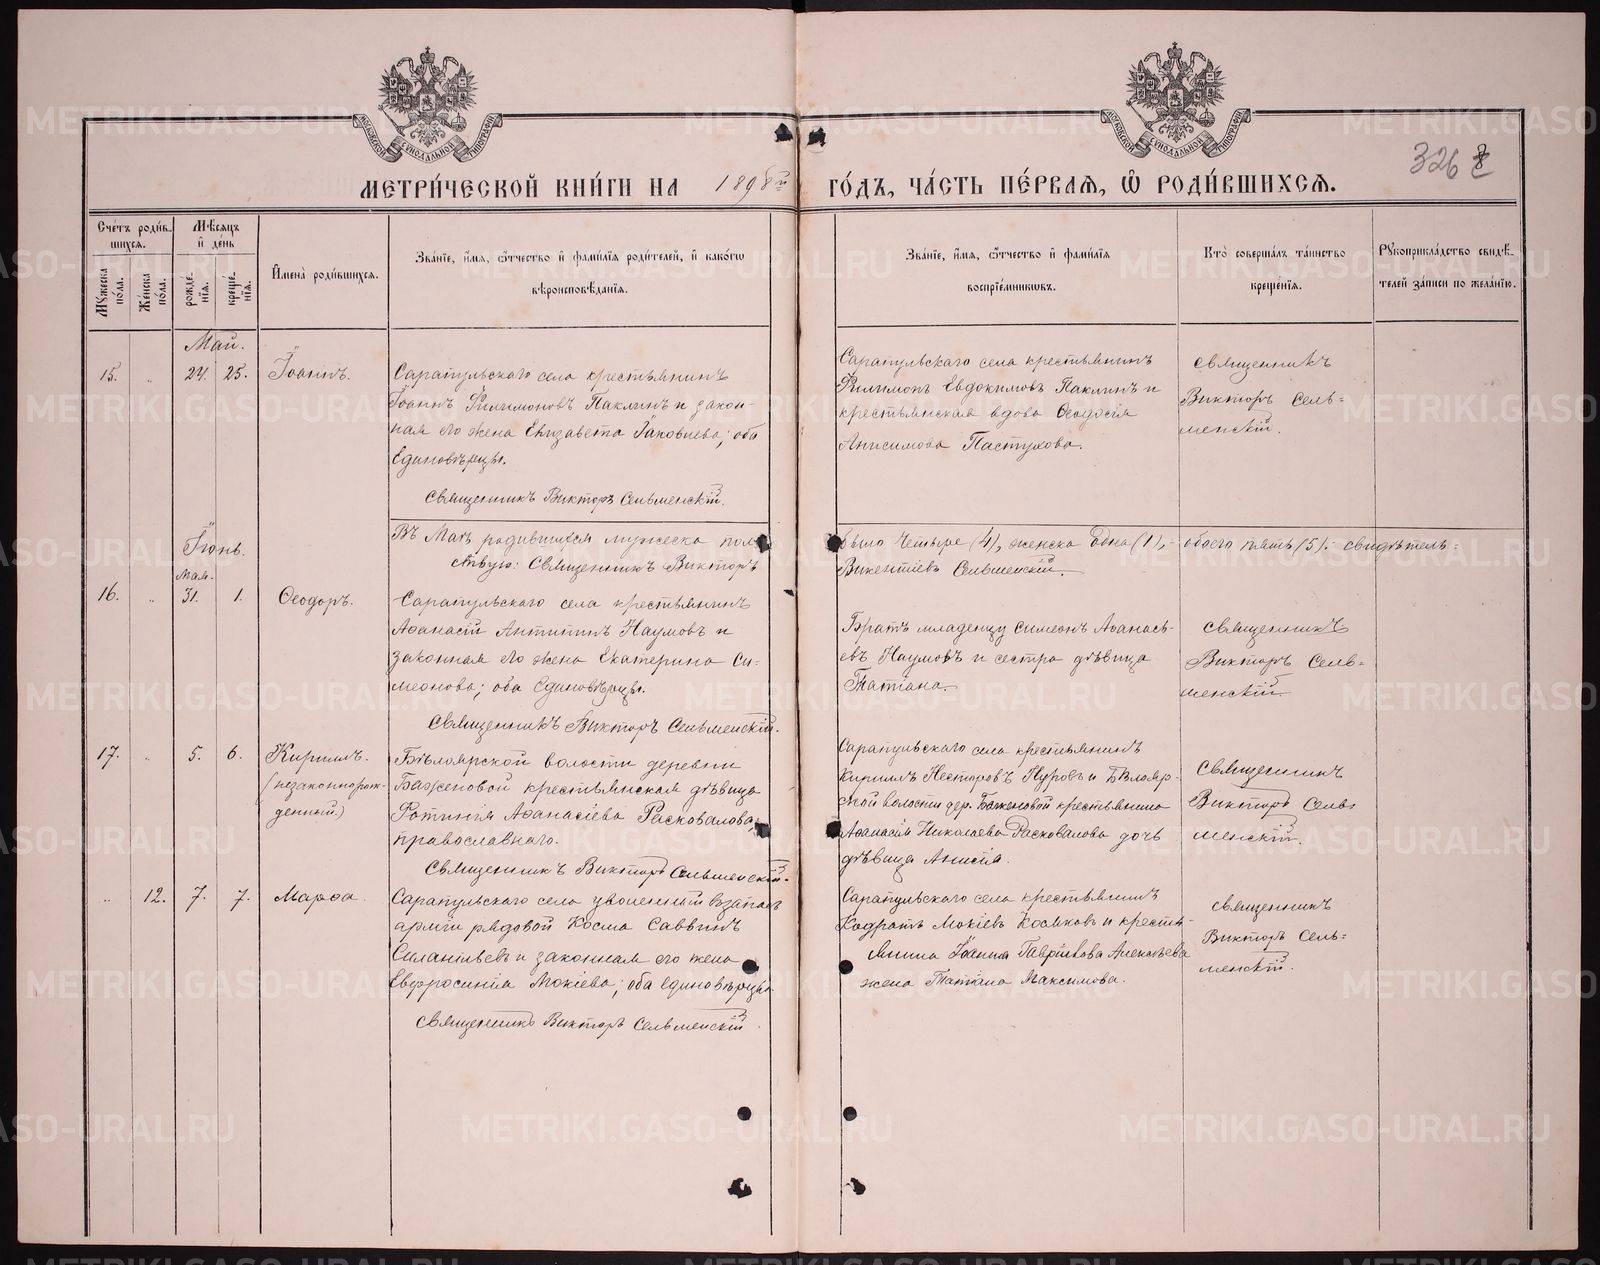 МЕТРИ́ЧЕСКОЙ КНИ́ГИ НА 1898й ГО́ДЪ, ЧА́СТЬ ПЕ́РВАЯ, Ѽ РОДИ́ВШИХСЯ.
326
Сче́тъ роди́в-
шихся.
Мѣсяцъ
и҆ де́нь
Мꙋжеска по́ла.
Же́нска по́ла.
рожде́нїя.
креще́нїя.
И҆мена̀ роди́вшихся.
Зва́нїе, и҆́мя, ѻ҆́тчество и҆ фами́лїя роди́телей, и҆ како́гѡ
вѣроисповѣ́данїя.
Зва́нїе, и҆́мя, ѻ҆́тчество и҆ фами́лїя
воспрїе́мникѡвъ.
Кто̀ соверша́лъ та́инство
креще́нїя.
Рꙋкоприкла́дство свидѣ́-
телей за́писи по жела́нїю.
Май.
15. „ 24. 25. Іоаннъ.
Сарапульскаго села крестьянинъ
Іоаннъ Филимоновъ Паклинъ и закон-
ная его жена Елизавета Іаковлева; оба
Единовѣрцы.
Священникъ Викторъ Сельменскій.
Сарапульскаго села крестьянинъ
Филимонъ Евдокимовъ Паклинъ и
крестьянская вдова Ѳеодосія
Анисимова Пастухова.
священникъ
Викторъ Сель=
менскій.
Въ Маѣ родившихся мужеска пола было Четыре (4), женска Одна (1), - обоего пять (5): свидѣтель=
ствую: Священникъ Викторъ Викентіевъ Сельменскій.
Іюнь.
Мая.
16. „ 31. 1. Ѳеодоръ.
Сарапульскаго села крестьянинъ
Аѳанасій Антипинъ Наумовъ и
законная его жена Екатерина Си-
меонова; оба Единовѣрцы.
Священникъ Викторъ Сельменскій.
Братъ младенцу Симеонъ Аѳанась-
евъ Наумовъ и сестра дѣвица
Татіана.
священникъ
Викторъ Сель=
менскій.
17. „ 5. 6. Кириллъ.
(незаконнорож-
денный)
Бѣлоярской волости деревни
Баженовой крестьянская дѣвица
Фотинія Аѳанасіева Расковалова,
православнаго.
Священникъ Викторъ Сельменскій.
Сарапульскаго села крестьянинъ
Кириллъ Несторовъ и Бѣлояр-
ской волости дер. Баженовой крестьянина
Аѳанасія Николаева Расковалова дочь
дѣвица Анисія.
священникъ
Викторъ Сель=
менскій.
„ 12. 7. 7. Марѳа.
Сарапульскаго села уволенный въ запасъ
арміи рядовой Косма Саввинъ
Силантьевъ и законная его жена
Евфросинія Мокіева; оба единовѣрцы.
Священникъ Викторъ Сельменскій
Сарапульскаго села крестьянинъ
Кодратъ Мокіевъ и кресть-
янина Іоанна Гаврилова
жена Татіана Максимова.
священникъ
Викторъ Сель=
менскій.
METRIKI.GASO-URAL.RU